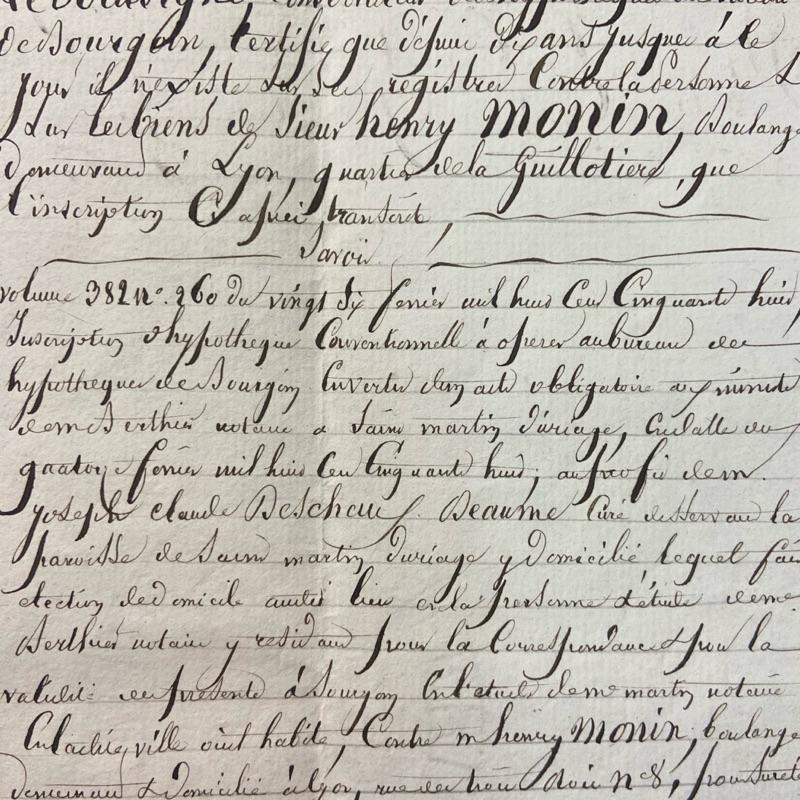 de Bourgoin, Certifie que depuis dix ans jusque à ce
jour il n'existe sur ses registres Contre la personne &
sur les biens de Sieur henry MONIN, Boulang
domeurand à Lyon, quartier de la Guillotiere, que
l'inscription Ci apres transcrite,
Savoir
volume 382 n°. 260 du vingt Six fevrier mil huit Cen Cinquante huit,
Inscription d'hypotheque Conventionnelle à operer au bureau des
hypotheques de Bourgoin En vertu d'un acte obligatoire aux minutes
de me Berthier notaire a Saint martin d'uriage, En datte du
quatorze fevrier mil huit Cen Cinquante huit; au profit de m.
joseph claude Deschaux Beaume Curé desservant la
paroisse de Saint martin d'uriage y Domicilié lequel fait
election de domicile audit lieu en la personne & étude de me
Berthier notaire y residant pour la Correspondance & pour la
validité des présentes à Bourgoin En l'etude de me martin notaire
En ladite ville où il habite, Contre m henry MONIN, boulange
demeurant & Domicilié à Lyon, rue des trois Rois n° 8, pour sureté